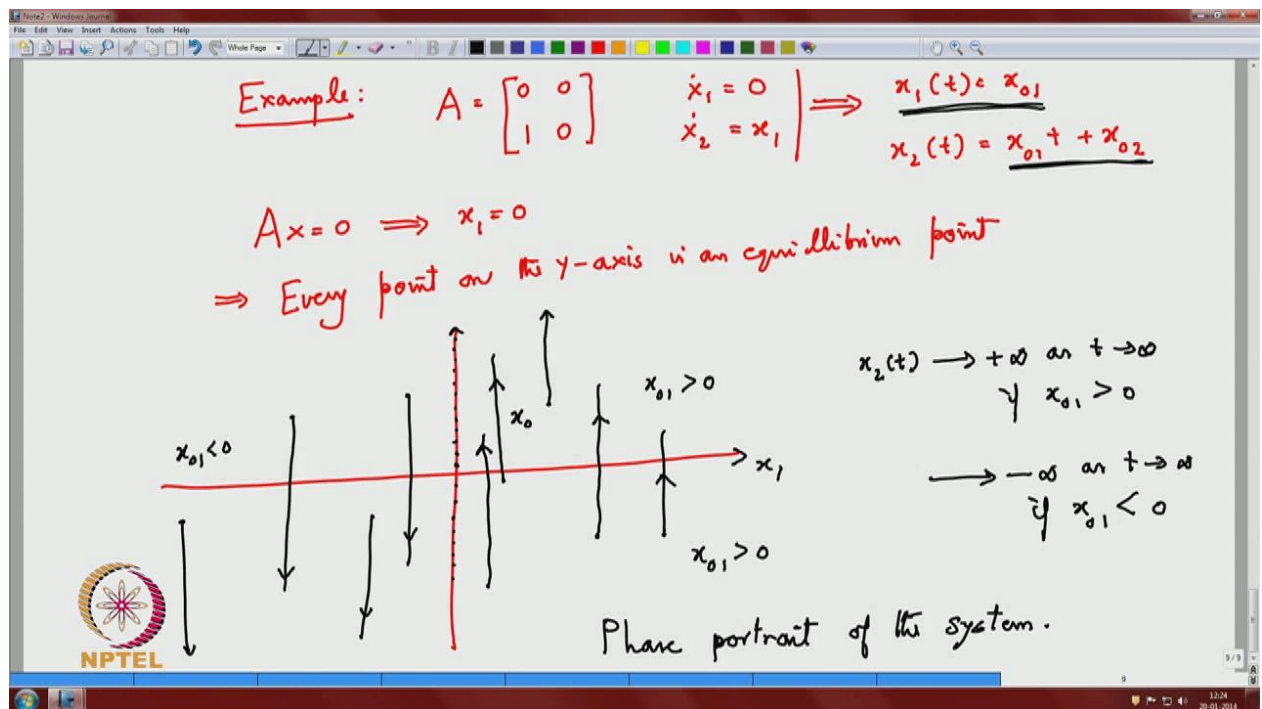 Note2 - Windows Journal
File Edit View Insert Actions Tools Help
Whole Page
Example: A = [0 0; 1 0] ẋ₁ = 0 ẋ₂ = x₁ ⟹ x₁(t) = x₀₁
x₂(t) = x₀₁ t + x₀₂
Ax = 0 ⟹ x₁ = 0
⟹ Every point on the y-axis is an equillibrium point
x₂(t) → +∞ as t → ∞
if x₀₁ > 0
x₀₁ > 0
x₀
x₀₁ < 0
x₁
→ -∞ as t → ∞
if x₀₁ < 0
x₀₁ > 0
Phase portrait of the system.
NPTEL
9/9
9
12:24
20-01-2014